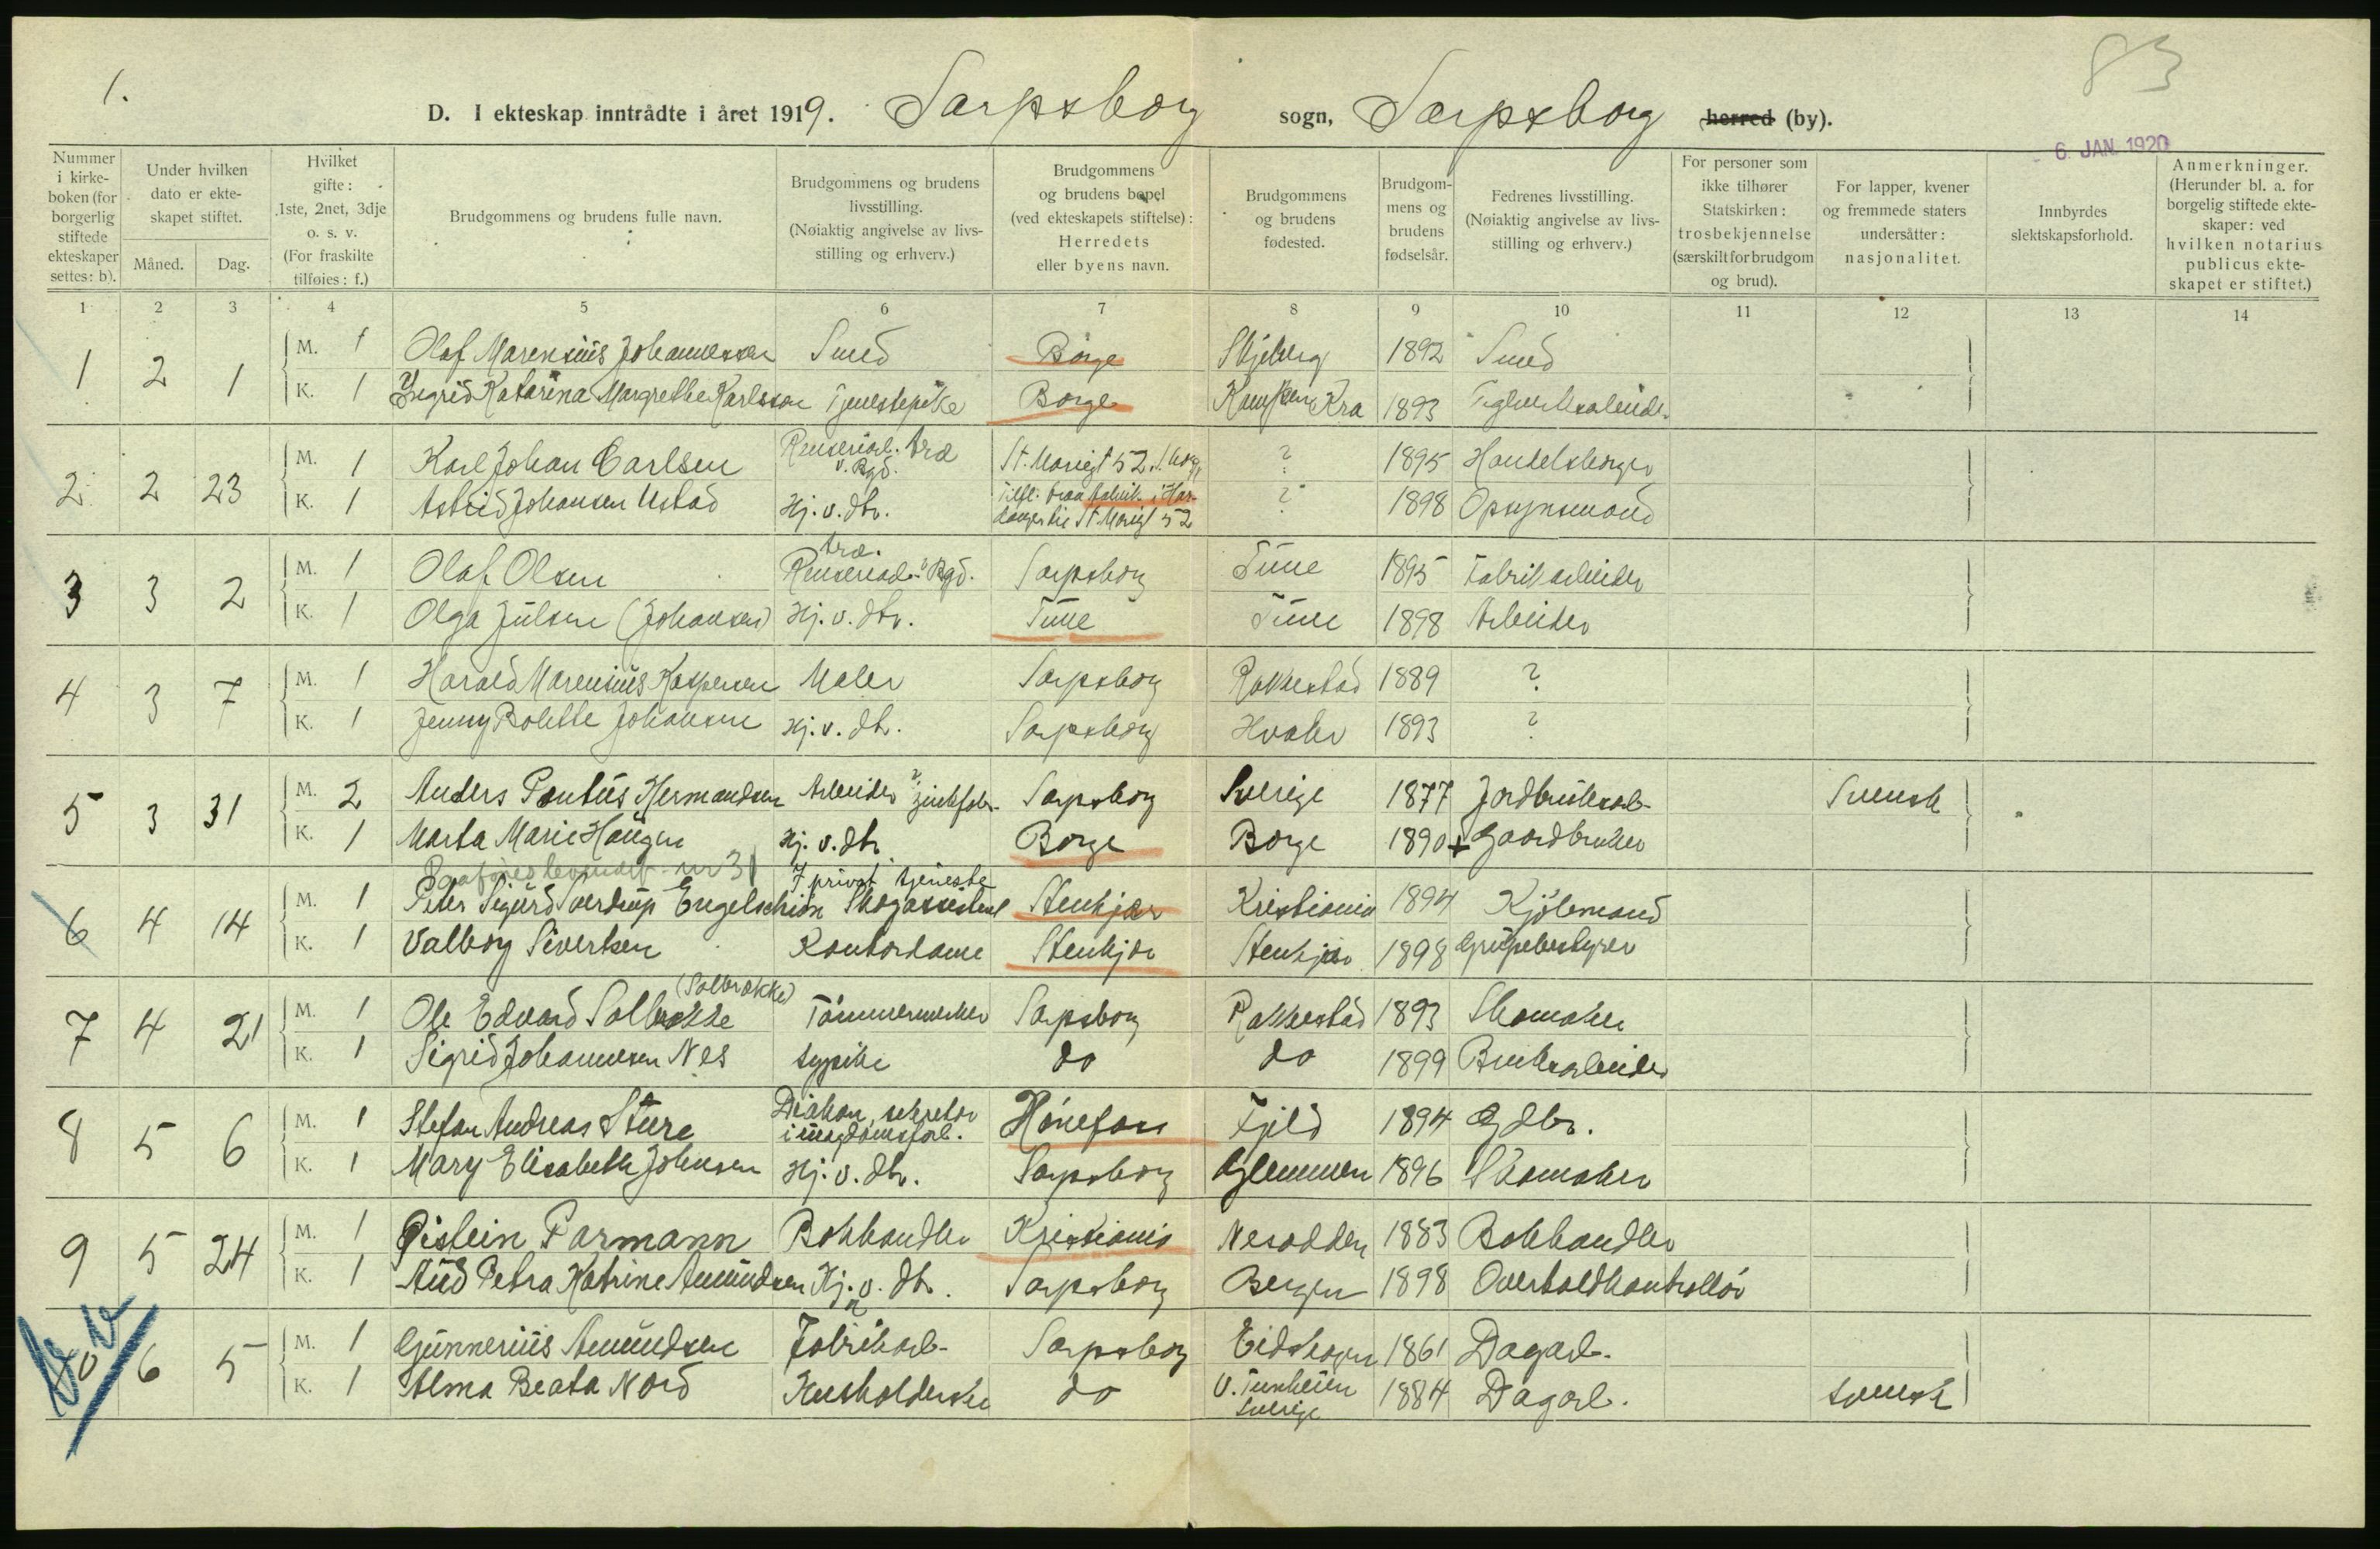 83
1.
D. I ekteskap inntrådte i året 1919. Sarpsborg sogn, Sarpsborg herred (by).
6. JAN. 1920
Nummer i kirkeboken (for borgerlig stiftede ekteskaper settes: b).
Under hvilken dato er ekteskapet stiftet.
Måned.
Dag.
Hvilket gifte: 1ste, 2net, 3dje o. s. v. (For fraskilte tilføies: f.)
Brudgommens og brudens fulle navn.
Brudgommens og brudens livsstilling. (Nøiaktig angivelse av livsstilling og erhverv.)
Brudgommens og brudens bopel (ved ekteskapets stiftelse): Herredets eller byens navn.
Brudgommens og brudens fødested.
Brudgommens og brudens fødselsår.
Fedrenes livsstilling. (Nøiaktig angivelse av livsstilling og erhverv.)
For personer som ikke tilhører Statskirken: trosbekjennelse (særskilt for brudgom og brud).
For lapper, kvener og fremmede staters undersåtter: nasjonalitet.
Innbyrdes slektskapsforhold.
Anmerkninger. (Herunder bl. a. for borgelig stiftede ekteskaper: ved hvilken notarius publicus ekteskapet er stiftet.)
1 2 3 4 5 6 7 8 9 10 11 12 13 14
1 2 1 M. 1 Olaf Marensius Johannessen Smed Borge Skjeberg 1892 Smed
K. 1 Ingrid Katarina Margrethe Karlsson Tjenestepike Borge Kra 1893
2 2 23 M. 1 Karl Johan Carlsen Renseriarb. træ v. Bgd. St. Mariegt 52 S.borg ? 1895 Handelsborger
K. 1 Astrid Johansen Ustad Hj. v. dtr. Tilfl. fraa i Hardanger til St Marigt 52 ? 1898 Opsynsmand
3 3 2 M. 1 Olaf Olsen træ. Renseriarb. v Bgd. Sarpsborg Tune 1895 Fabrikarbeider
K. 1 Olga Julsen (Johansen) Hj. v. dtr. Tune Tune 1898 Arbeider
4 3 7 M. 1 Harald Marensius Kaspersen Maler Sarpsborg Rakkestad 1889 ?
K. 1 Jenny Bolette Johansen Hj. v. dtr. Sarpsborg Hvaler 1893 ?
5 3 31 M. 2 Anders Pontus Hermandsen Arbeider v zinkfabr. Sarpsborg Sverige 1877 Jordbruksarb. Svensk
K. 1 Marta Marie Haugen Hj. v. dtr. Borge Borge 1890 + Gaardbruker
nr 31 I privat tjeneste
6 4 14 M. 1 Peter Sigurd Sverdrup Engelschiøn Skogassistent Stenkjær Kristiania 1894 Kjøbmand
K. 1 Valborg Sivertsen Kontordame Stenkjær Stenkjær 1898 Grubebestyrer
(Solbrække)
7 4 21 M. 1 Ole Edvard Solbrække Tømmermerker Sarpsborg Rakkestad 1893 Skomaker
K. 1 Sigrid Johannesen Nes sypike do do 1899 Bruksarbeider
8 5 6 M. 1 Stefan Andreas Sture Diakon, sekretær i ungdomsforb. Hønefoss Fjeld 1894 Gdbr.
K. 1 Mary Elisabeth Johnsen Hj. v. dtr. Sarpsborg Glemmen 1896 Skomaker
9 5 24 M. 1 Øistein Parmann Bokhandler Kristiania Nesodden 1883 Bokhandler
K. 1 Aud Petra Katrine Amundsen Hj. v. dtr. Sarpsborg Bergen 1898 Overtoldkontrollør
10 6 5 M. 1 Gunnerius Amundsen Fabrikarb. Sarpsborg Eidskogen 1861 Dagarb.
K. 1 Alma Beata Nord Husholderske do Sverige 1884 Dagarb. svensk